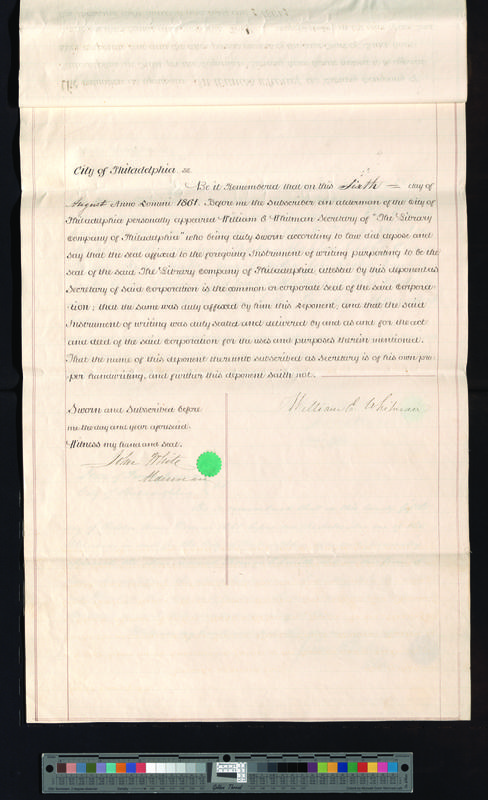 City of Philadelphia ss.
Be it Remembered that on this Sixth day of
August Anno Domini 1861. Before me the subscriber an alderman of the City of
Philadelphia personally appeared William E Whitman Secretary of "The Library
Company of Philadelphia" who being duly sworn according to law did depose and
say that the seal affixed to the foregoing Instrument of writing purporting to be the
seal of the said The Library Company of Philadelphia attested by this deponent as
Secretary of said Corporation is the common or corporate seal of the said Corpora-
tion; that the same was duly affixed by him this Deponent; and that the said
Instrument of writing was duly sealed and delivered by and as and for the act
and deed of the said Corporation for the uses and purposes therein mentioned.
That the name of this deponent thereunto subscribed as Secretary is of his own pro-
per handwriting, and further this deponent saith not.
Sworn and Subscribed before
me the day and year aforesaid.
Witness my hand and seal.
William E. Whitman
John White
Alderman